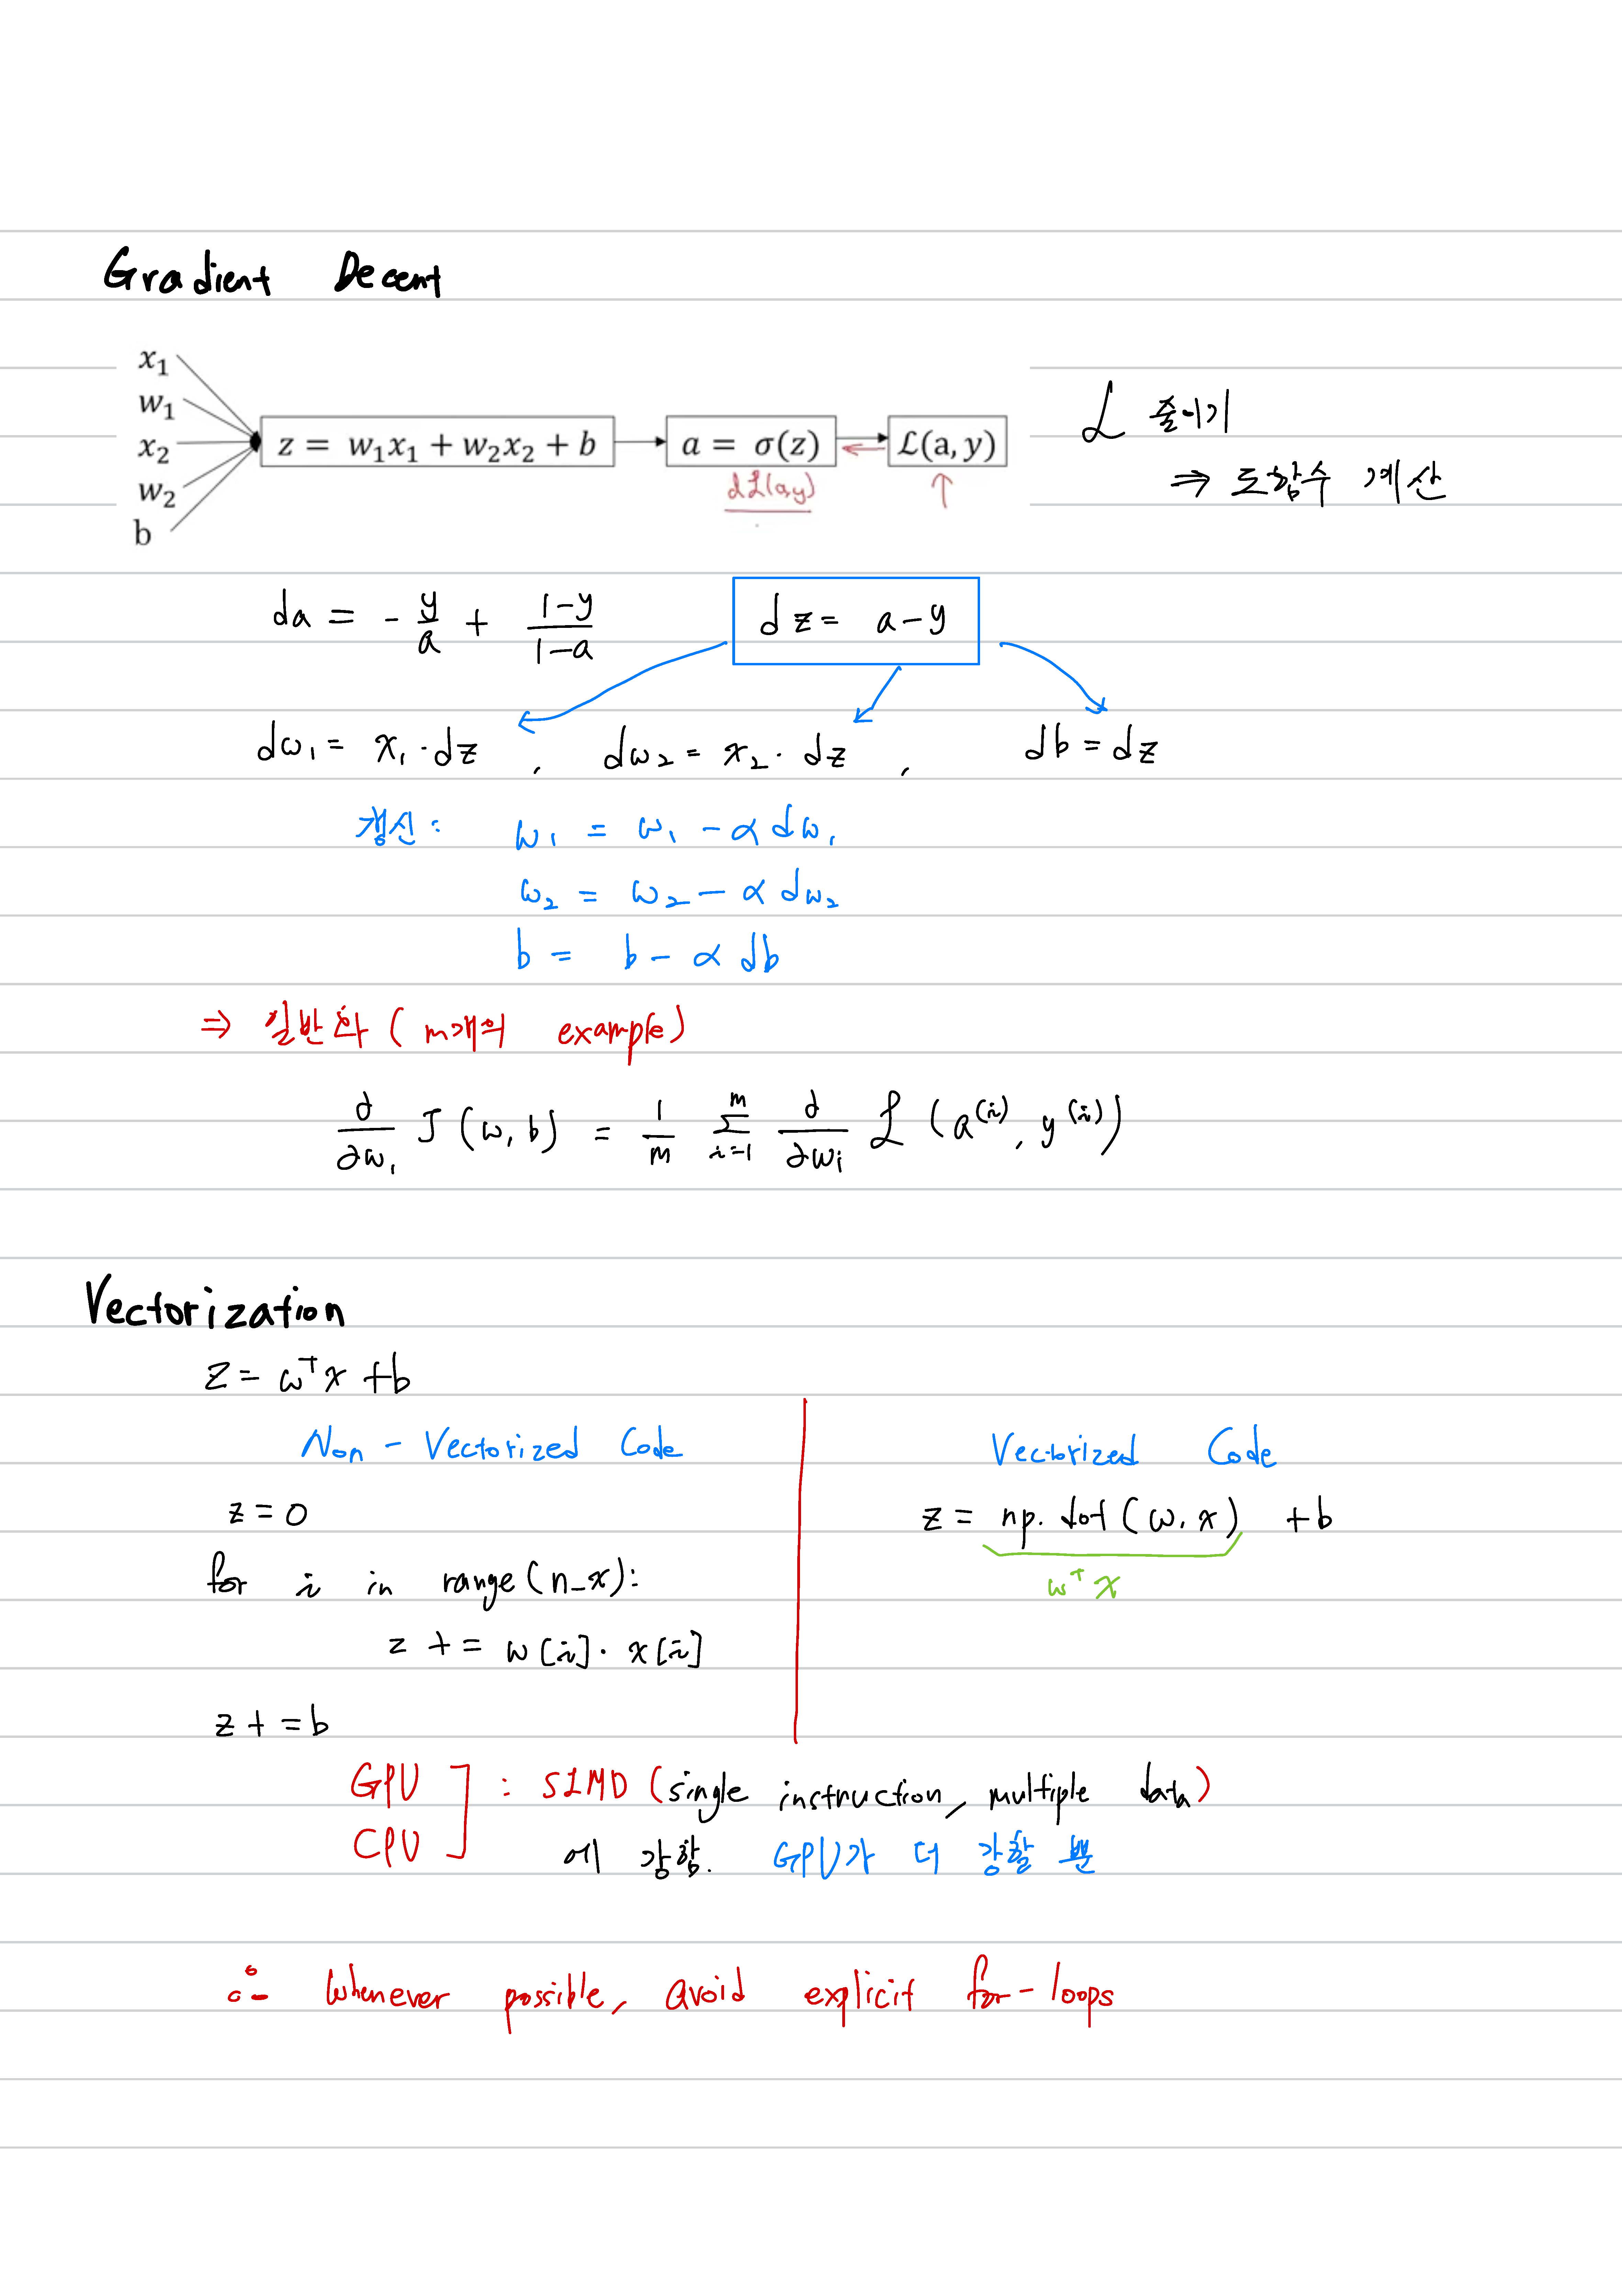 Gradient Decent
x₁
w₁
x₂
w₂
b
z = w₁x₁ + w₂x₂ + b
a = σ(z)
ℒ(a, y)
dℒ(a,y)
ℒ 줄이기
⇒ 도함수 계산
da = - y/a + (1-y)/(1-a)
dz = a-y
dw₁ = x₁·dz , dw₂ = x₂·dz , db = dz
갱신: w₁ = w₁ - α dw₁
w₂ = w₂ - α dw₂
b = b - α db
⇒ 일반화 (m개의 example)
d/∂w₁ J(w,b) = 1/m Σ_{i=1}^{m} d/∂wᵢ ℒ(a⁽ⁱ⁾, y⁽ⁱ⁾)
Vectorization
z = wᵀx + b
Non - Vectorized Code
z = 0
for i in range(n_x):
z += w[i]·x[i]
z += b
Vectorized Code
z = np.dot(w,x) + b
wᵀx
GPU
CPU
: SIMD (single instruction, multiple data)
에 강함. GPU가 더 강할 뿐
∴ Whenever possible, avoid explicit for-loops